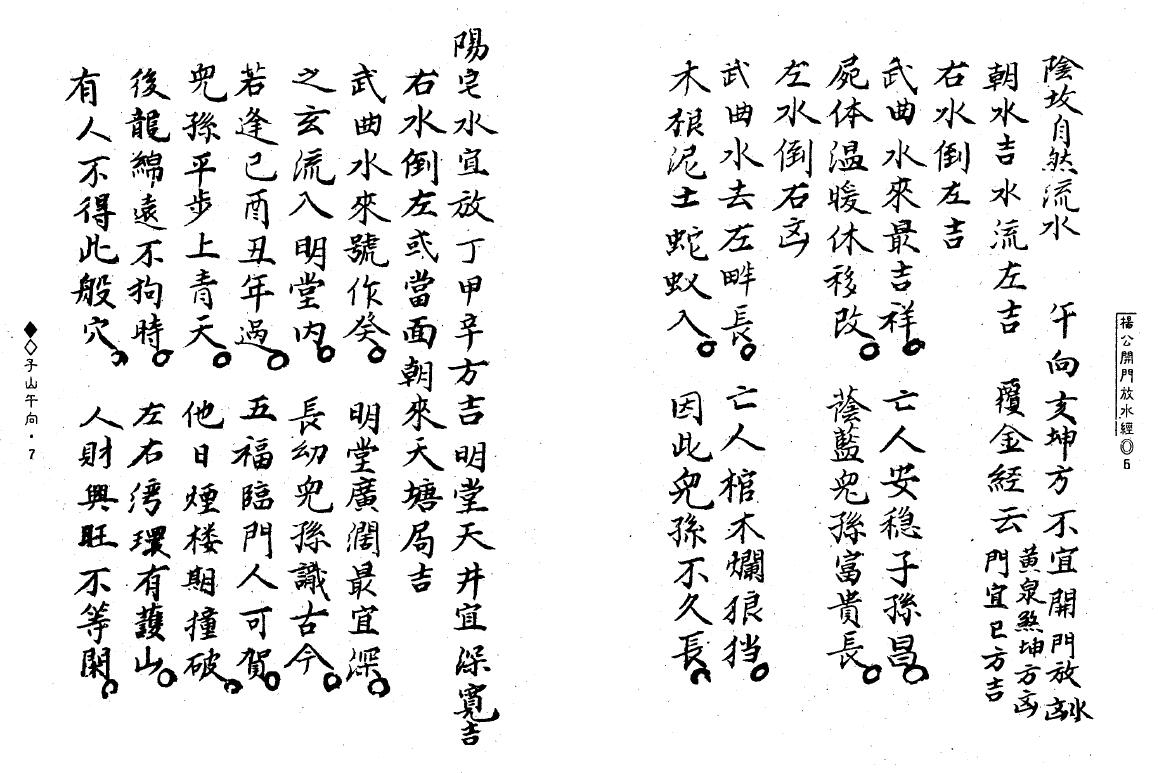 楊公開門放水經◎6
陰坟自然流水 午向亥坤方不宜開門放水凶
黄泉煞坤方凶
朝水吉水流左吉 覆金經云門宜巳方吉
右水倒左吉
武曲水來最吉祥。亡人安穏子孫昌。
屍体温暖休移改。蔭藍兒孫富貴長。
左水倒右凶
武曲水去左畔長。亡人棺木爛狼挡。
木根泥土蛇蚁入。因此兒孫不久長。
陽宅水宜放丁甲辛方吉明堂天井宜深寬吉
右水倒左或當面朝來天塘局吉
武曲水來號作癸。明堂廣濶最宜深。
之玄流入明堂內。長幼兒孫識古今。
若逢己酉丑年過。五福臨門人可賀。
兒孫平步上青天。他日煙楼期撞破。
後龍綿遠不狗時。左右湾環有護山。
有人不得此般穴。人財興旺不等閑。
◆◇子山午向・7